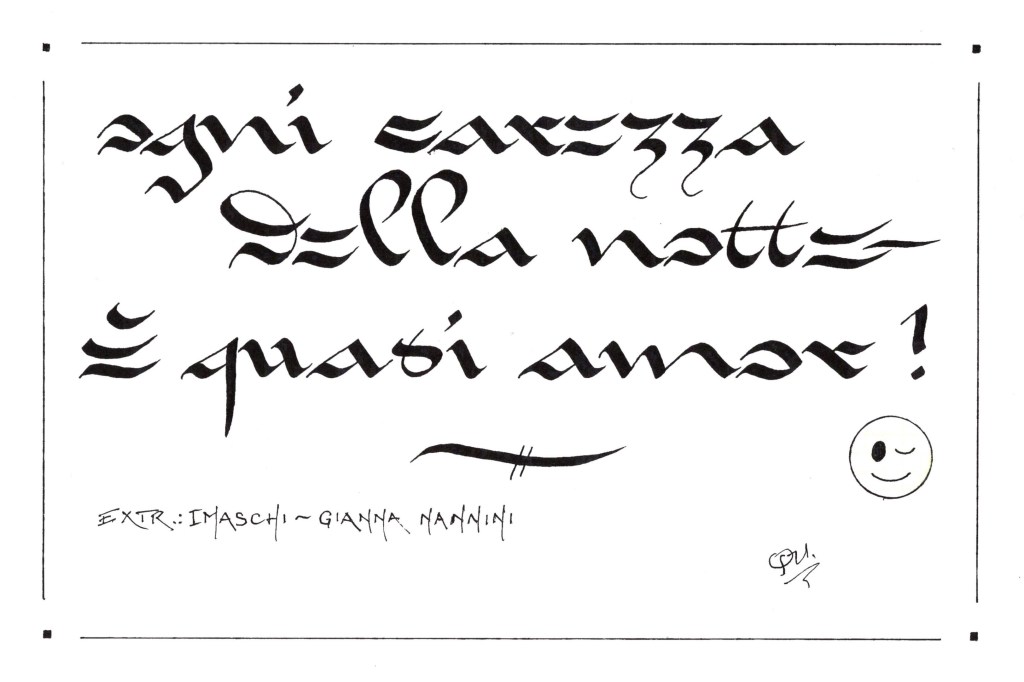 ogni carezza
della notte
È quasi amor!
EXTR.: I MASCHI ~ GIANNA NANNINI